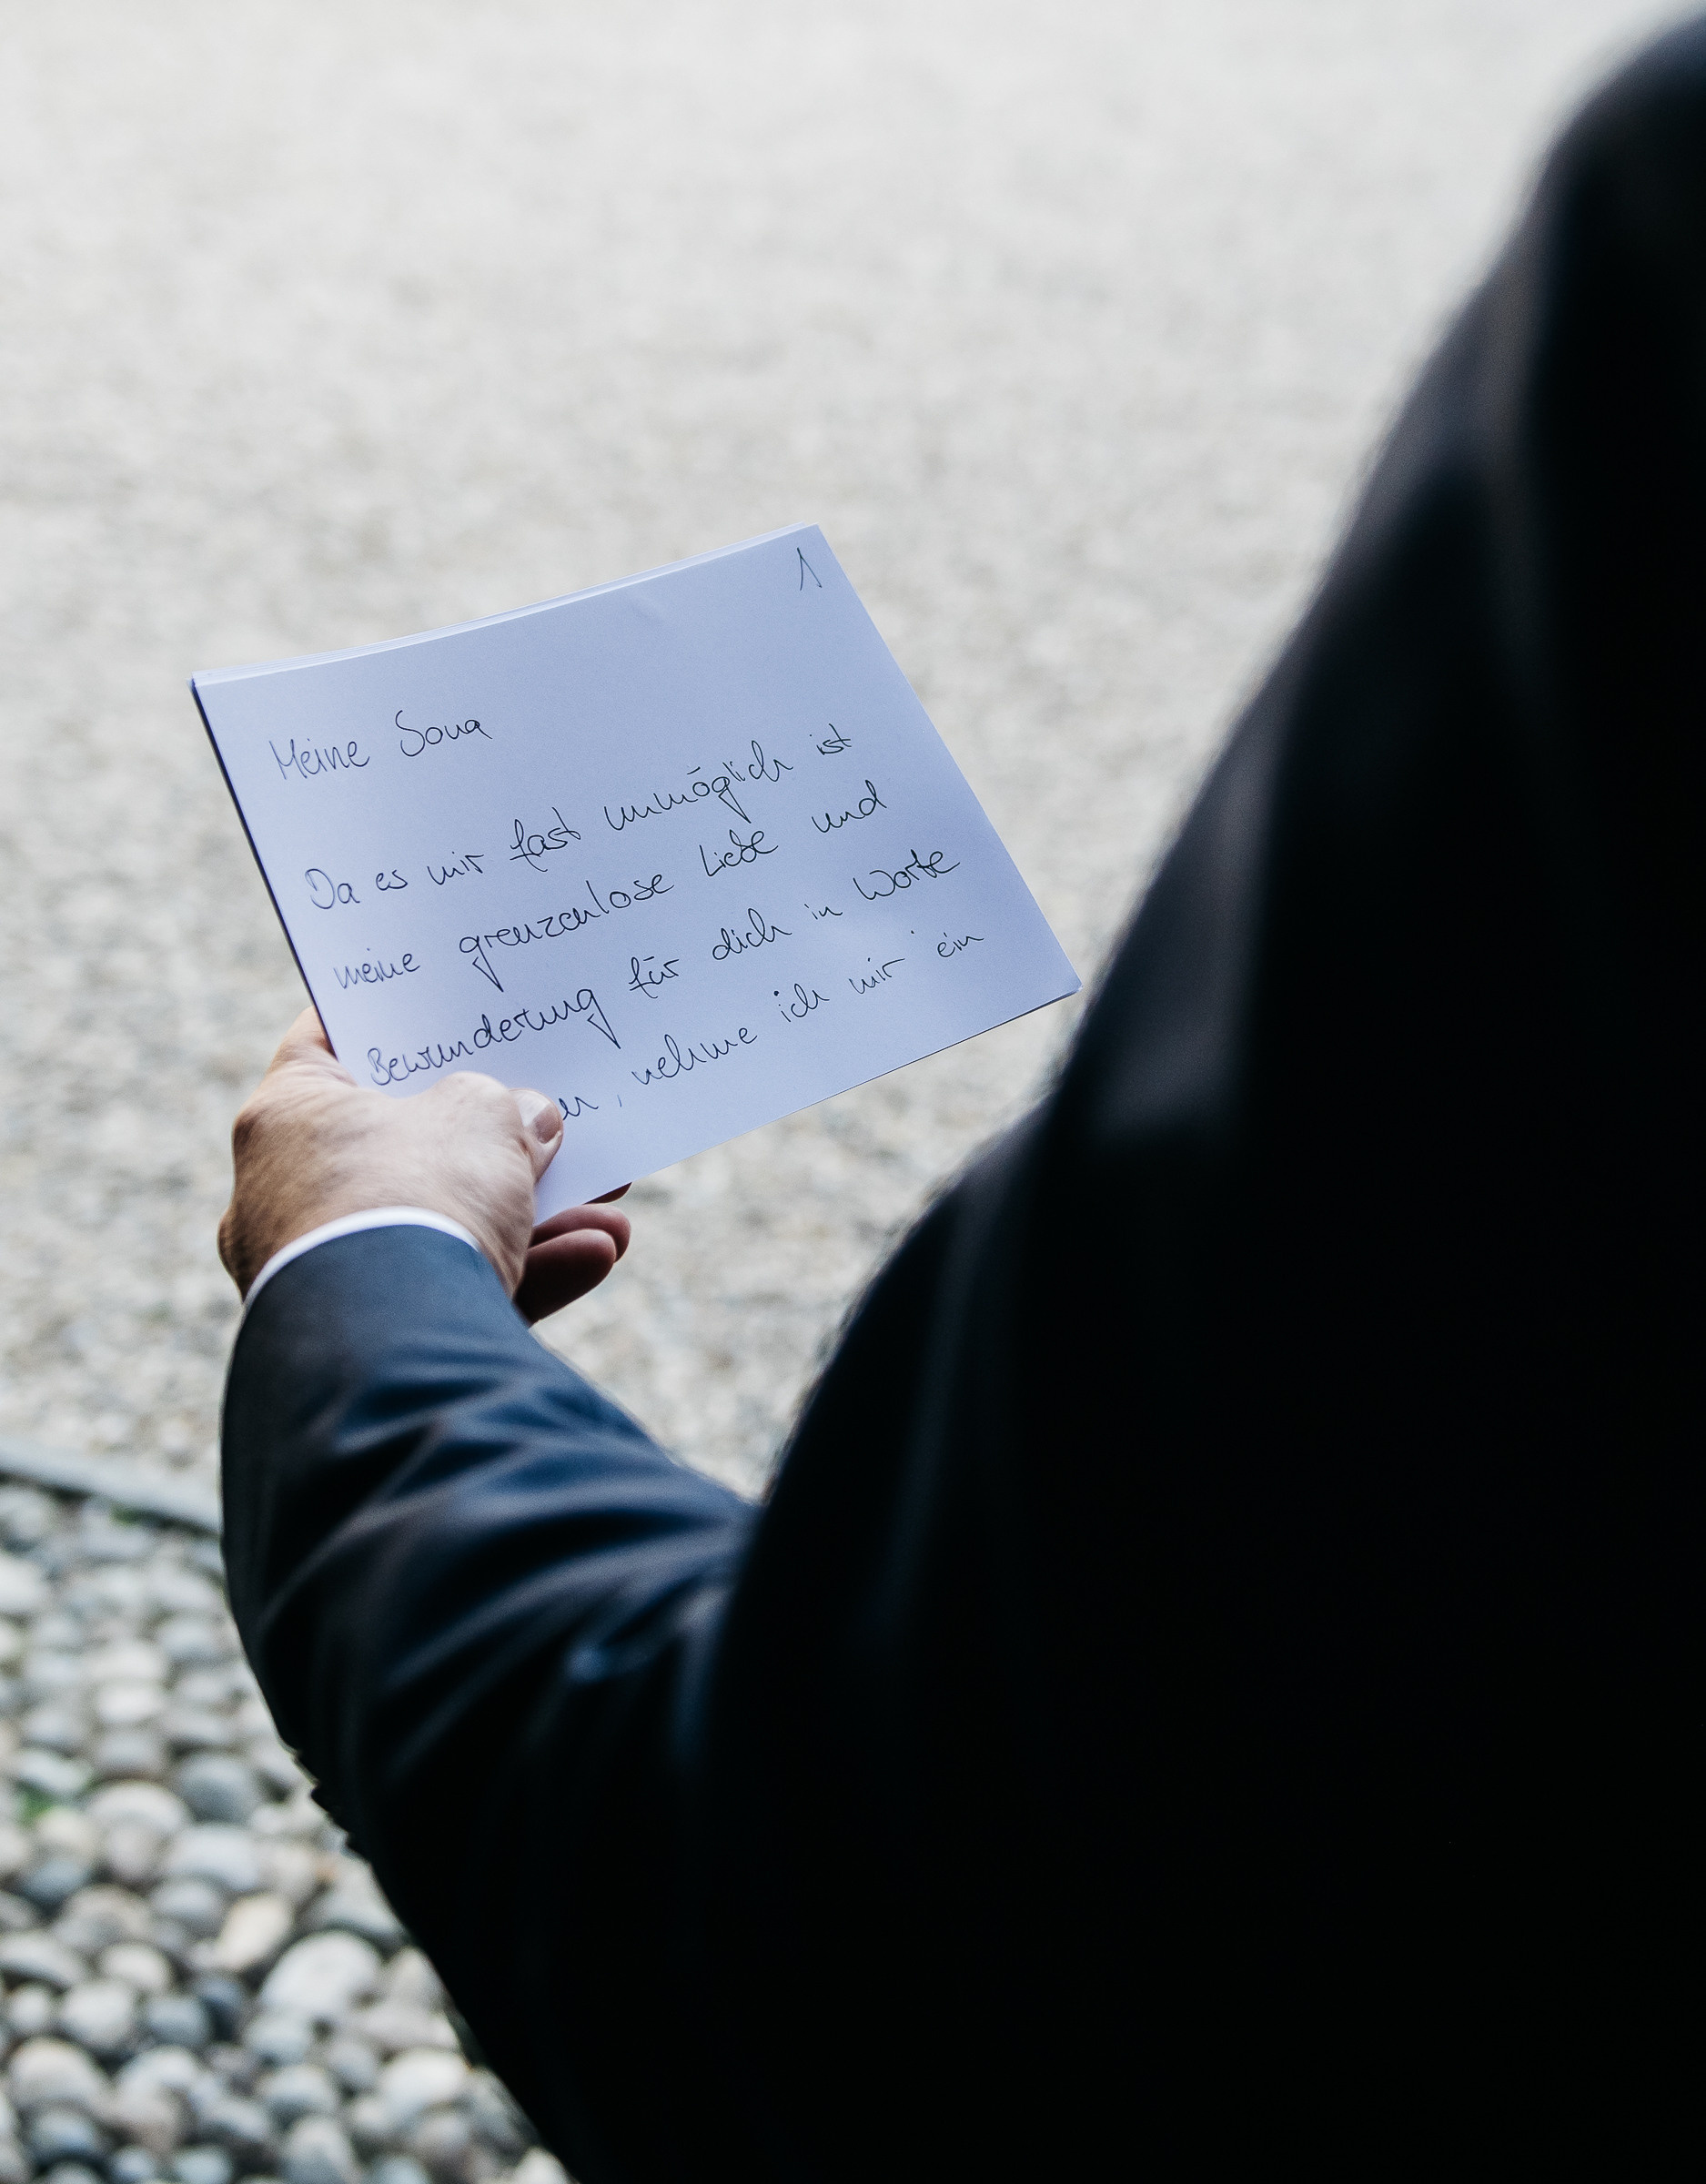 1
Meine Sona
Da es mir fast unmöglich ist
meine grenzenlose Liebe und
Bewunderung für dich in Worte
, nehme ich mir ein